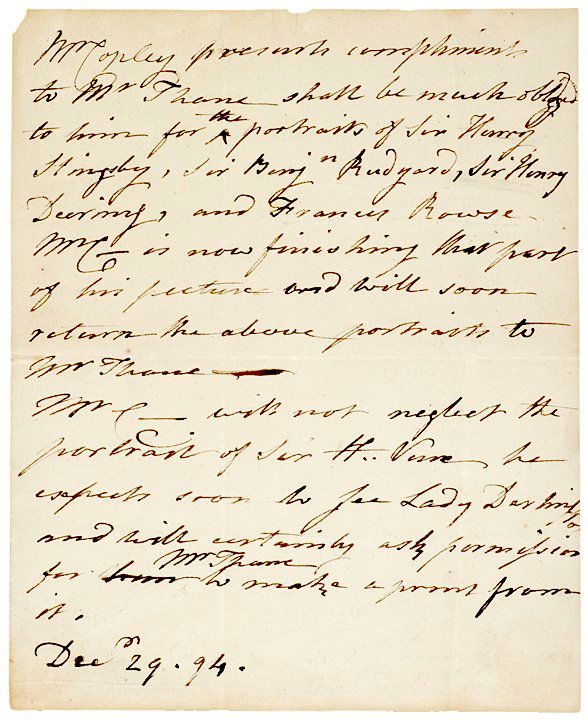 Mr Copley presents compliments
to Mr Thane shall be much obliged
to him for the portraits of Sir Henry
Slingsby, Sir Benjn Rudyard, Sir Henry
Deering, and Francis Rowse
Mr C— is now finishing that part
of his picture and will soon
return the above portraits to
Mr Thane —
Mr C— will not neglect the
portrait of Sir H.. Vane he
expects soon to see Lady Darlington
and will certainly ask permission
for Mr Thane to make a print from
it.
Decr 29. 94.